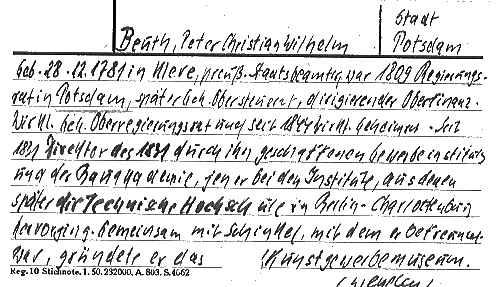 Stadt
Beuth, Peter Christian Wilhelm Potsdam
geb. 28.12.1781 in Kleve, preuß. Staatsbeamter, war 1809 Regierungs-
rat in Potsdam, später Geh. Obersteuerrat, dirigierender Oberfinanz-
Wirkl. Geh. Oberregierungsrat und seit 1844 wirkl. Geheimrat. Seit
1831 Direktor des 1821 durch ihn geschaffenen Gewerbeinstituts
und der Bauakademie, jener beiden Institute, aus denen
später die Technische Hochschule in Berlin-Charlottenburg
hervorging. Gemeinsam mit Schinkel, mit dem er befreundet
war, gründete er das Kunstgewerbemuseum.
Reg. 10 Stichnote. 1. 50. 232000. A. 803. S. 4062